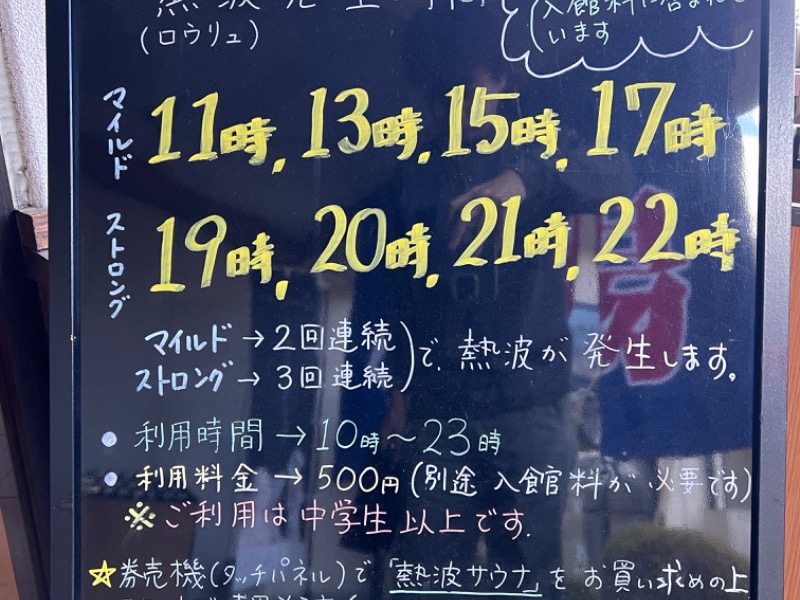 (ロウリュ)
います
マイルド 11時, 13時, 15時, 17時
ストロング 19時, 20時, 21時, 22時
マイルド → 2回連続
ストロング → 3回連続
で、熱波が発生します。
• 利用時間 → 10時〜23時
• 利用料金 → 500円 (別途 入館料が必要です)
※ ご利用は中学生以上です.
☆ 券売機(タッチパネル)で「熱波サウナ」をお買い求めの上